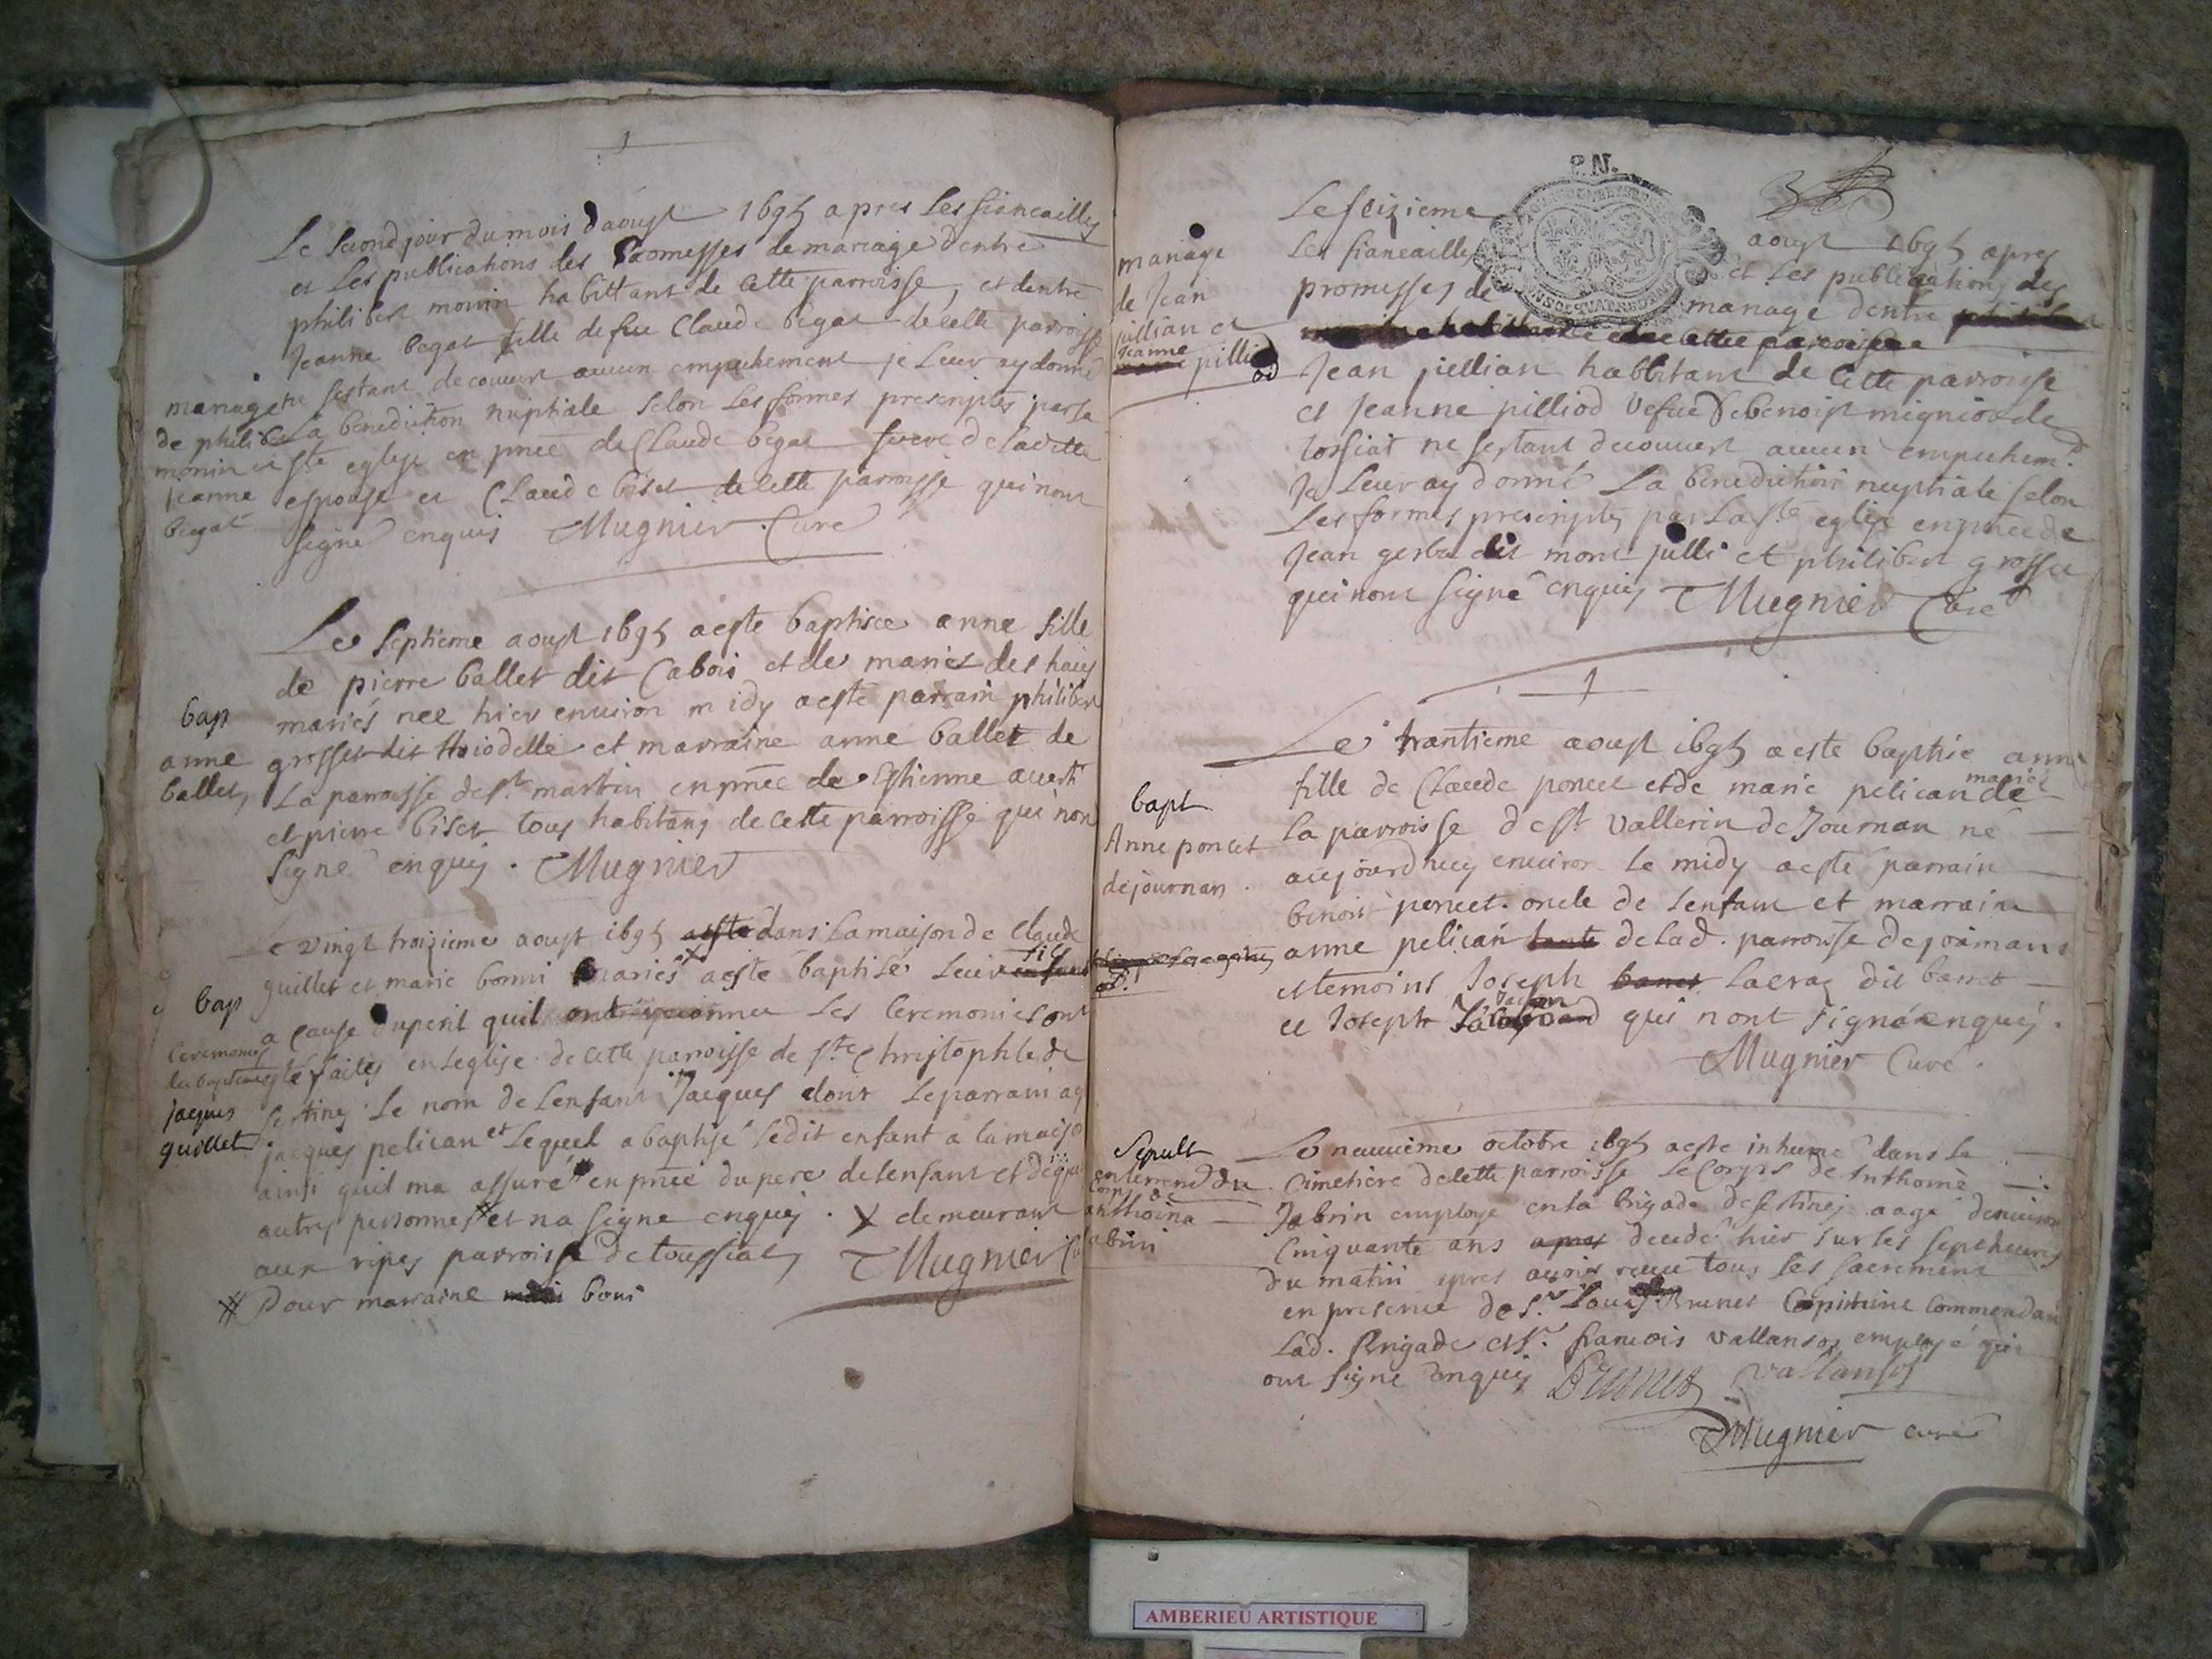 Le second jour du mois d'aoust 1695 apres les fiancailles
et les publications des promesses de mariage dentre
philibert monin habittant de cette parroisse, et dentre
Jeanne begat fille de feu Claude begat de cette parroisse
ne sestant decouvert aucun empechement je leur ay donné
la benediction nuptiale selon les formes prescriptes par la
ste eglise en pnce de Claude begat frere de laditte
espouse et Claude biset de cette parroisse qui nont
signé enquis Mugnier Curé
mariage
de philibert
monin et
jeanne
begat
Le septieme aoust 1695 a esté baptisee anne fille
de pierre ballet dit Cabois et de marie des hais
mariés nee hier environ midy a esté parrain philibert
grosset dit et marraine anne ballet de
La parroisse de st martin en pnce de Estienne
et pierre biset tous habitans de cette parroisse qui nont
signé enquis. Mugnier
bap
anne
ballet
Le vingt troizieme aoust 1695 dans la maison de Claude
guillet et marie bonni mariés a esté baptisé leur fils
a cause du peril quil les Ceremonies ont
esté faites en leglise de cette parroisse de ste Christophle de
sertines le nom de lenfant Jacques dont le parrain a
jacques pelican et lequel a baptisé ledit enfant a la maison
ainsi quil ma assuré en pnce du pere de lenfant et de
autres personnes et na signé enquis. X demeurant
aux ripes parroisse de toussiat Mugnier
# pour marraine boni
bap
Ceremonies
du bapteme
jacques
guillet
P.N.
Le seizieme aoust 1695 apres
les fiancailles et les publications des
promesses de mariage dentre
cette parroisse
Jean jullian habbitant de cette parroisse
et Jeanne pilliod vefue de benoist migniod de
tossiat ne sestant decouvert aucun empechemt
Je leur ay donné la benediction nuptiale selon
les formes prescriptes par la ste eglise en pnce de
Jean gerba dit mont julli et philibert grosset
qui nont signé enquis Mugnier Curé
mariage
de Jean
jullian et
Jeanne
pilliod
Le trantieme aoust 1695 a esté baptisé anne
fille de Claude poncet et de marie pelican mariés de
la parroisse de st vallerin de Journan né
aujourdhuy environ le midy a esté parrain
benoist poncet oncle de lenfant et marraine
anne pelican tante de lad. parroisse de jornans
et temoins Joseph lacras dit barret
et Joseph qui nont signé enquis.
Mugnier Curé.
bapt
Anne poncet
de journan.
Le neuvieme octobre 1695 a esté inhumé dans le
Cimetiere de cette parroisse le Corps de Anthoine
Jabrin employé en la brigade de sertines aagé denviron
Cinquante ans decedé hier sur les sept heures
du matin apres avoir receu tous les sacrement
en presence de Sr. Louis Brunet Capitaine Commendant
Lad. Brigade et Sr. francois vallansot employé qui
ont signé enquis Brunet vallansot
Mugnier curé
Sepult
enterremt du
corp
anthoine
abrin
AMBERIEU ARTISTIQUE